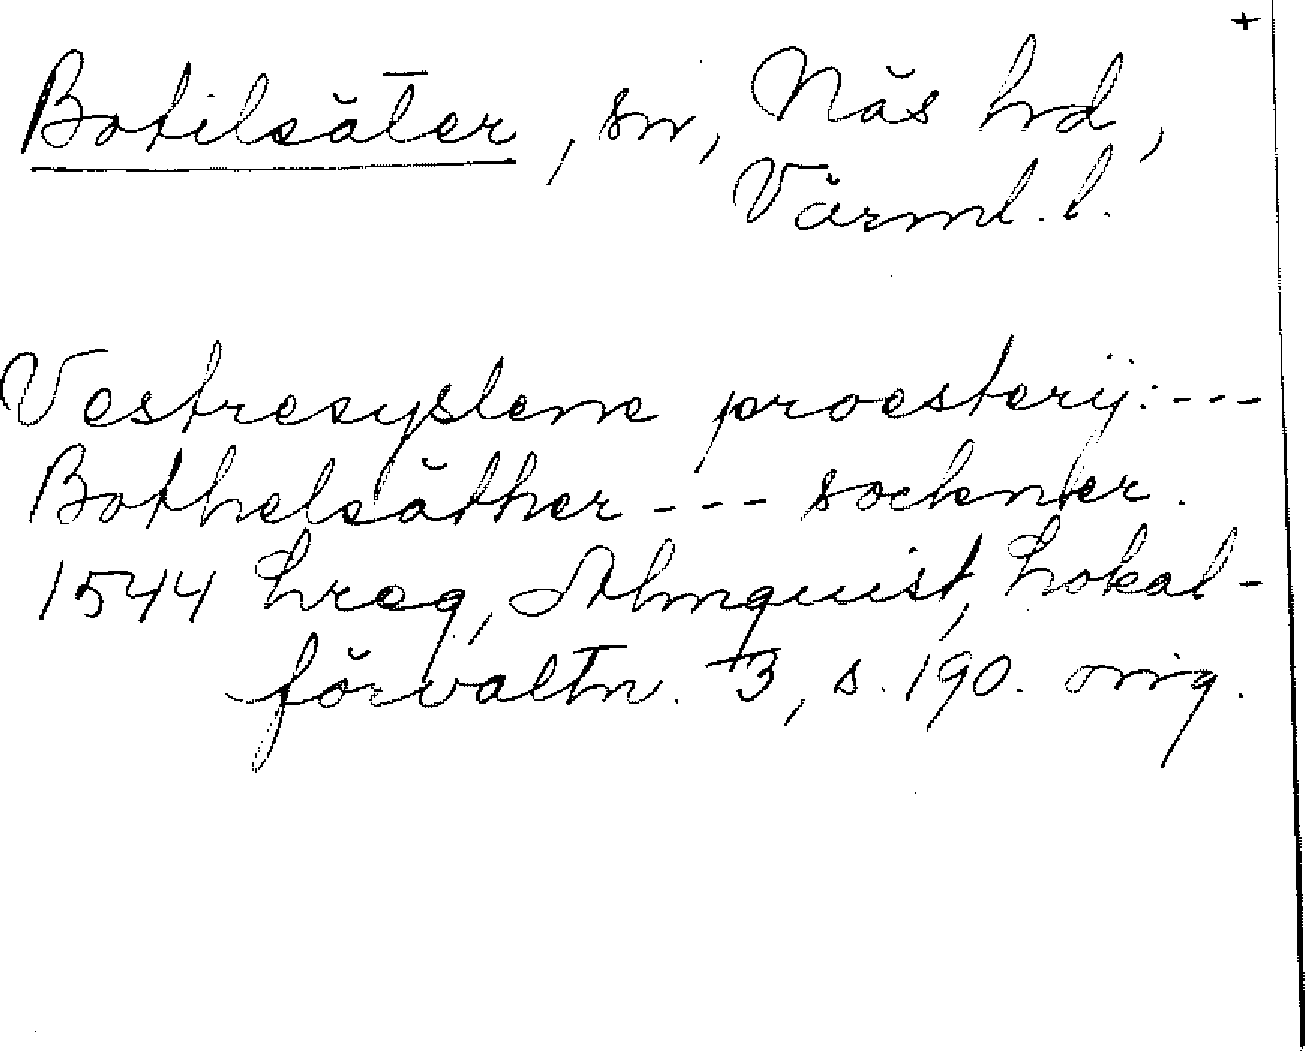 +
Botilsäter, sn, Näs hd,
Värml. l.
Vestresyslene proesterij: ---
Bothelsäther --- sockner.
1544 hreg, Almquist, Lokal-
förvaltn. 3, s. 190. orig.